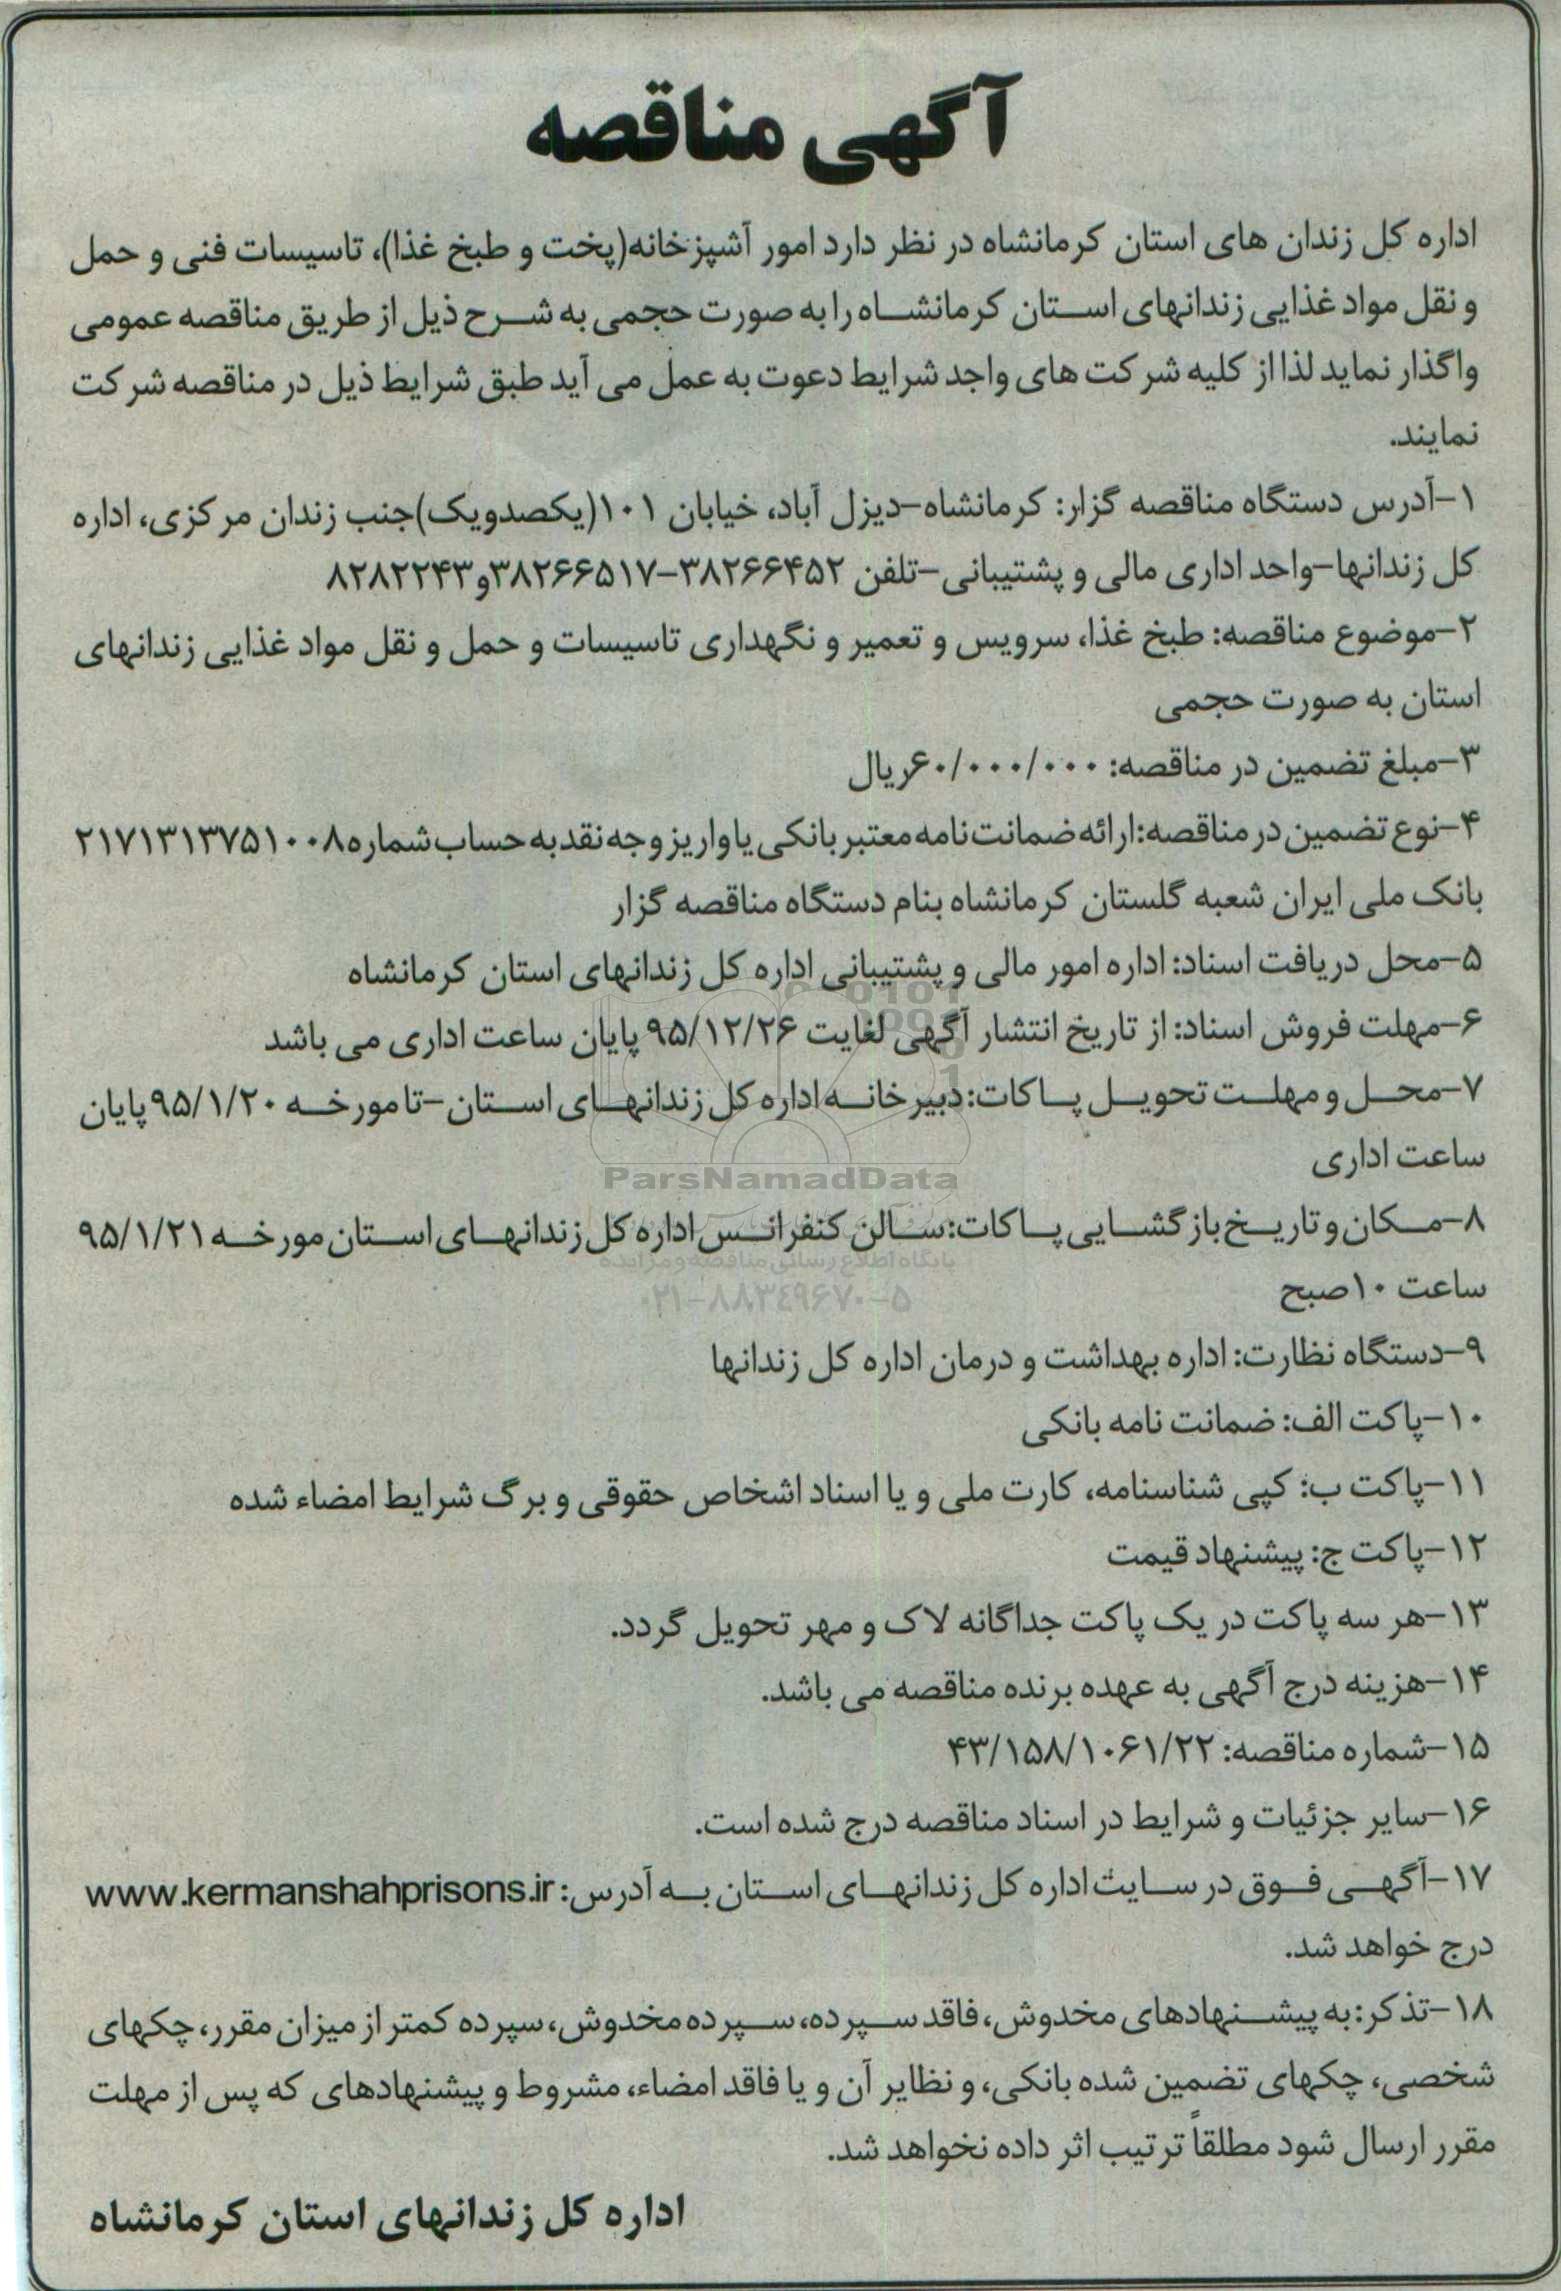 آگهی مناقصه
اداره کل زندان های استان کرمانشاه در نظر دارد امور آشپزخانه(پخت و طبخ غذا)، تاسیسات فنی و حمل
و نقل مواد غذایی زندانهای استان کرمانشاه را به صورت حجمی به شرح ذیل از طریق مناقصه عمومی
واگذار نماید لذا از کلیه شرکت های واجد شرایط دعوت به عمل می آید طبق شرایط ذیل در مناقصه شرکت
نمایند.
۱-آدرس دستگاه مناقصه گزار: کرمانشاه-دیزل آباد، خیابان ۱۰۱(یکصدویک)جنب زندان مرکزی، اداره
کل زندانها-واحد اداری مالی و پشتیبانی-تلفن ۳۸۲۶۶۴۵۲-۳۸۲۶۶۵۱۷و۸۲۸۲۲۴۳
۲-موضوع مناقصه: طبخ غذا، سرویس و تعمیر و نگهداری تاسیسات و حمل و نقل مواد غذایی زندانهای
استان به صورت حجمی
۳-مبلغ تضمین در مناقصه: ۶۰/۰۰۰/۰۰۰ریال
۴-نوع تضمین در مناقصه:ارائه ضمانت نامه معتبر بانکی یا واریز وجه نقد به حساب شماره۲۱۷۱۳۱۳۷۵۱۰۰۸
بانک ملی ایران شعبه گلستان کرمانشاه بنام دستگاه مناقصه گزار
۵-محل دریافت اسناد: اداره امور مالی و پشتیبانی اداره کل زندانهای استان کرمانشاه
۶-مهلت فروش اسناد: از تاریخ انتشار آگهی لغایت ۹۵/۱۲/۲۶ پایان ساعت اداری می باشد
۷-محل و مهلت تحویل پاکات: دبیرخانه اداره کل زندانهای استان -تا مورخه ۹۵/۱/۲۰پایان
ساعت اداری
ParsNamadData
۸-مکان و تاریخ بازگشایی پاکات:سالن کنفرانس اداره کل زندانهای استان مورخه ۹۵/۱/۲۱
پایگاه اطلاع رسانی مناقصه و مزایده
ساعت ۱۰صبح
۰۲۱-۸۸۳۴۹۶۷۰-۵
۹-دستگاه نظارت: اداره بهداشت و درمان اداره کل زندانها
۱۰-پاکت الف: ضمانت نامه بانکی
۱۱-پاکت ب: کپی شناسنامه، کارت ملی و یا اسناد اشخاص حقوقی و برگ شرایط امضاء شده
۱۲-پاکت ج: پیشنهاد قیمت
۱۳-هر سه پاکت در یک پاکت جداگانه لاک و مهر تحویل گردد.
۱۴-هزینه درج آگهی به عهده برنده مناقصه می باشد.
۱۵-شماره مناقصه: ۴۳/۱۵۸/۱۰۶۱/۲۲
۱۶-سایر جزئیات و شرایط در اسناد مناقصه درج شده است.
۱۷-آگهی فوق در سایت اداره کل زندانهای استان به آدرس: www.kermanshahprisons.ir
درج خواهد شد.
۱۸-تذکر: به پیشنهادهای مخدوش، فاقد سپرده، سپرده مخدوش، سپرده کمتر از میزان مقرر، چکهای
شخصی، چکهای تضمین شده بانکی، و نظایر آن و یا فاقد امضاء، مشروط و پیشنهادهای که پس از مهلت
مقرر ارسال شود مطلقاً ترتیب اثر داده نخواهد شد.
اداره کل زندانهای استان کرمانشاه